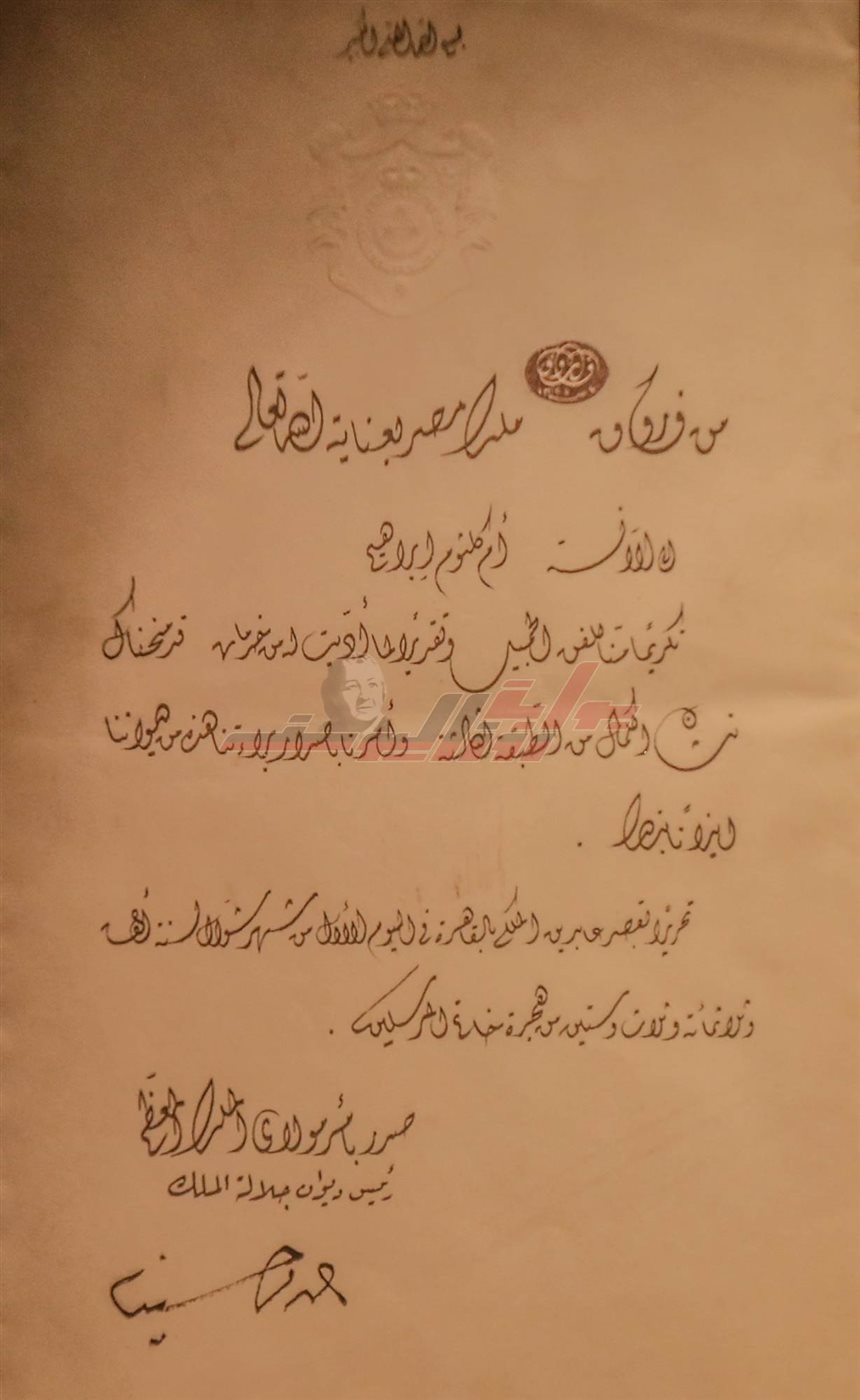 بسم الله الرحمن الرحيم
من فاروق ملك مصر بعناية الله تعالى
إلى الآنسة أم كلثوم إبراهيم
تكريمًا منا للفن الجميل وتقديرًا لما أديت له من خدمات قد منحناك
نيشان الكمال من الطبقة الثالثة وأمرنا بإصدار براءتنا هذه من ديواننا
إيذانًا بذلك .
تحريرًا بقصر عابدين الملكي بالقاهرة في اليوم الأول من شهر شوال لسنة ألف
وثلاثمائة وثلاث وستين من هجرة خاتم المرسلين .
صدر بأمر مولاي الملك المعظم
رئيس ديوان جلالة الملك
أحمد حسنين